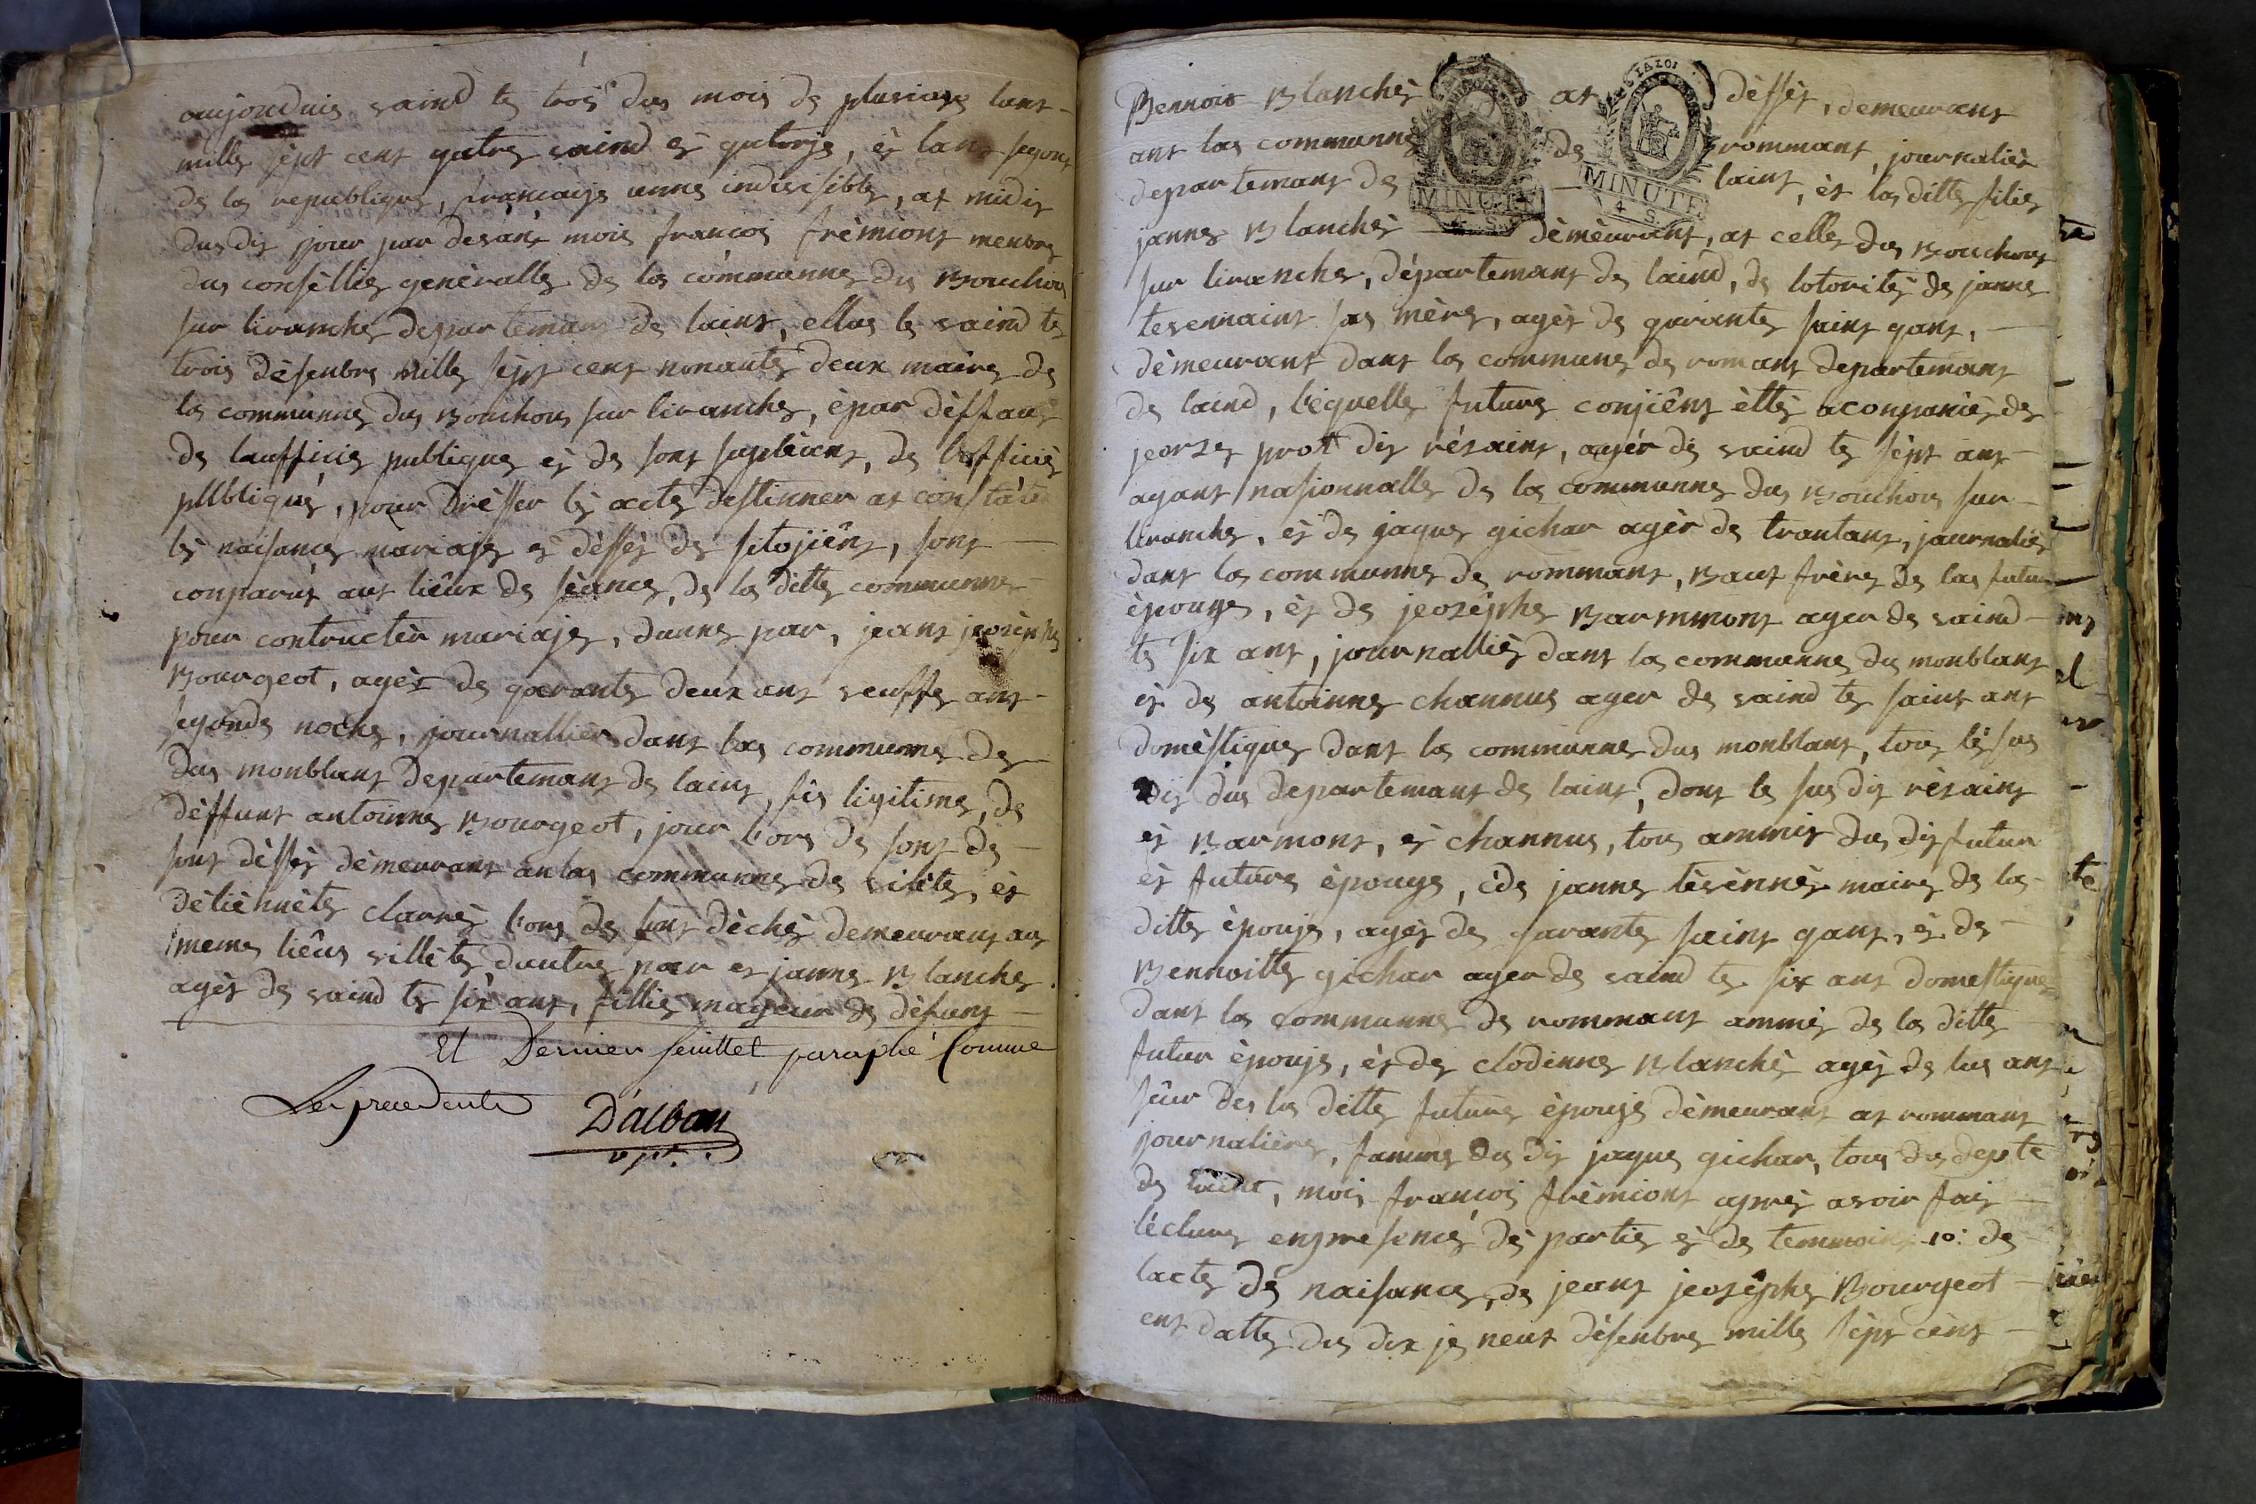 aujorduis vaind te trois dus mois de pluviose lant
mille sept cent quatre vaind et quatorje, et lant segont
de la republique, francaije unne indivisible, at midiy
dus dit jour par devant mois francois frèmiont menbre
dus consèllie generalle de la communne du Bouchou
sur livanche departemant de laint, ellus le vaind te
trois dèsenbre mille sèpt cent nonante deux maire de
la communne dus Bouchou sur livanche, èpar dèffaut
de laufficie publique et de sont suplèant, de lofficiè
publique, pour Drèsser lè acte destinner at constater
lè naisance mariage et dèssès de sitojiêns, sont
conparut aut lieux de sèance, de la ditte communne
pour contracter mariaje, dunne par, jeant jeosèphe
Bourgeot, agèr de garante deux ant veuffe ant
segonde noche, journallier dant las communne de
Dus monblant Departemant de laint, fis ligitisme, de
dèffunt antoinne Bourgeot, jour lors de sont de
sont dèssès dèmeurant an las communne de vilète, et
dètièn nète clarrè lors de sont dèchè demeurant au
meme liêus villète, dautre par et janne Blanche
agèr de vaind te six ant, fillie mageur de dèfunt
Et Dernier feuillet paraphé Comme
Les precedents D'alban
vpt.
Bennoit Blanchè at dèssès, demeurant
ant las communne de rommant, journaliêr
departemant de laint, èt las ditte filie
janne Blanchè dèmèurant, at celle dus Bouchou
sur livanche, dèpartemant de laind, de lotoritè de janne
tevennaint sas mère, agèr de garante saint gant,
dèmeurant dant las commune de romant departemant
de laind, lèquelle future conjiênt ètte aconpanièr de
jeorze prost dit rézaint, agèr de vaind te sèpt ant
agant nasionnalle de las communne dus Bouchou sur
livanche, èt de jaque gichar agèr de trantant, journaliêr
dant las communne de rommant, Baut frère de las future
èpouge, èt de jeozèphe Barmmont ager de vaind
te six ant, journallièr dant las communne du monblant
èt de antoinne channus ager de vaind te saint ant
domèstique dant las communne dus monblant, tous lè sus
dit dus departemant de laint, dont le sus dit rèzaint
èt Barmont, et channus, tous ammis dus dit futur
èt future èpouge, ède janne tèvènnè maire de las
ditte èpouje, agèr de garante saint gant, èt de
Bennoitte gichar ager de vaind te six ant domestique
dant las communne de rommant ammiè de las ditte
futur èpouje, èt de clodinne Blanchè agèr de lus ant
seûr de las ditte future èpouje dèmeurant at rommant
journalière, famme dus dit jaque gichar, tous dus depte
de laint, mois francois frèmiont aprè avoir fait
lèclure en presence dè partie et de temmoint 1o: de
lacte dè naisance, de jeant jeozèphe Bourgeot
ent datte dus dix je neut dèsenbre mille sèpt cènt